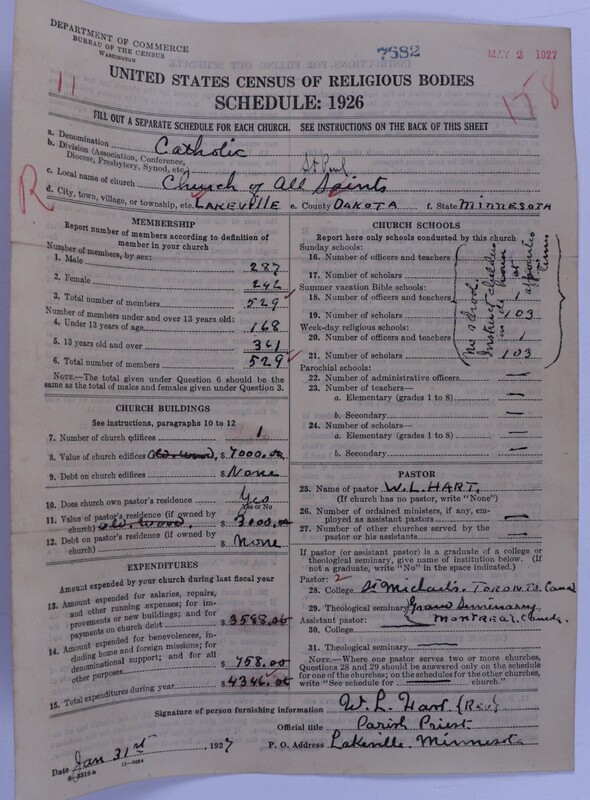 DEPARTMENT OF COMMERCE
BUREAU OF THE CENSUS
WASHINGTON
7682
MAY 2 1927
11
178
UNITED STATES CENSUS OF RELIGIOUS BODIES
SCHEDULE: 1926
FILL OUT A SEPARATE SCHEDULE FOR EACH CHURCH. SEE INSTRUCTIONS ON THE BACK OF THIS SHEET
a. Denomination Catholic
b. Division (Association, Conference,
Diocese, Presbytery, Synod, etc.) St Paul
c. Local name of church Church of All Saints
R
d. City, town, village, or township, etc. LAKEVILLE e. County DAKOTA f. State MINNESOTA
MEMBERSHIP
Report number of members according to definition of
member in your church
Number of members, by sex:
1. Male 287
2. Female 242
3. Total number of members 529
Number of members under and over 13 years old:
4. Under 13 years of age 168
5. 13 years old and over 361
6. Total number of members 529
NOTE.—The total given under Question 6 should be the
same as the total of males and females given under Question 3.
CHURCH BUILDINGS
See instructions, paragraphs 10 to 12
7. Number of church edifices 1
8. Value of church edifices old. wood. $ 7000.00
9. Debt on church edifices $ None
10. Does church own pastor's residence Yes
Yes or No
11. Value of pastor's residence (if owned by
church) old. wood. $ 3000.00
12. Debt on pastor's residence (if owned by
church) $ None
EXPENDITURES
Amount expended by your church during last fiscal year
13. Amount expended for salaries, repairs,
and other running expenses; for im-
provements or new buildings; and for
payments on church debt $ 3588.00
14. Amount expended for benevolences, in-
cluding home and foreign missions; for
denominational support; and for all
other purposes $ 758.00
15. Total expenditures during year $ 4346.00
CHURCH SCHOOLS
Report here only schools conducted by this church
Sunday schools:
16. Number of officers and teachers
17. Number of scholars
Summer vacation Bible schools:
18. Number of officers and teachers 1
19. Number of scholars 103
Week-day religious schools:
20. Number of officers and teachers 1
21. Number of scholars 103
No school
Instruct children
in the home
at
opportune
times
Parochial schools:
22. Number of administrative officers —
23. Number of teachers—
a. Elementary (grades 1 to 8) —
b. Secondary —
24. Number of scholars—
a. Elementary (grades 1 to 8) —
b. Secondary —
PASTOR
25. Name of pastor W.L. HART.
(If church has no pastor, write "None")
26. Number of ordained ministers, if any, em-
ployed as assistant pastors —
27. Number of other churches served by the
pastor or his assistants —
If pastor (or assistant pastor) is a graduate of a college or
theological seminary, give name of institution below. (If
not a graduate, write "No" in the space indicated.)
Pastor: 2
28. College St Michael's. TORONTO, Canada
29. Theological seminary Grand Seminary
Assistant pastor: MONTREAL, Canda.
30. College
31. Theological seminary —
NOTE.—Where one pastor serves two or more churches,
Questions 28 and 29 should be answered only on the schedule
for one of the churches; on the schedules for the other churches,
write "See schedule for church."
Signature of person furnishing information W. L. Hart (Rev)
Official title Parish Priest
Date Jan 31st, 1927 P. O. Address Lakeville. Minnesota
S-5518 A 11—9084